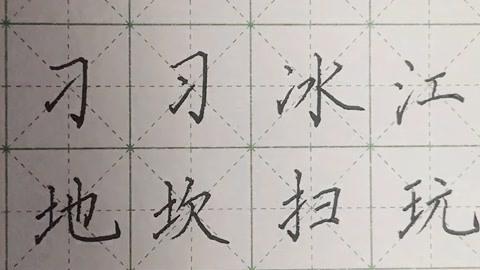 刁习冰江
地坎扫玩